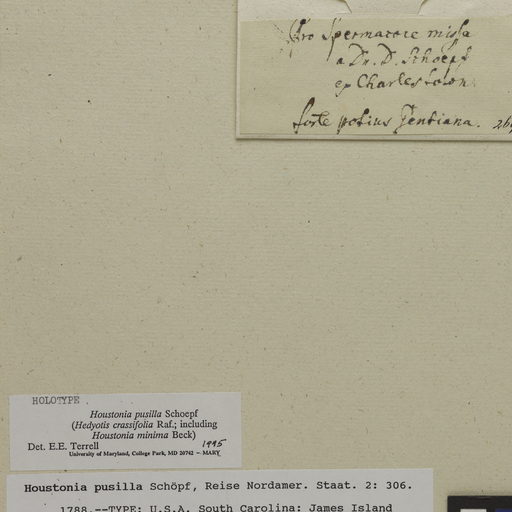 Pro Spermacoce missa
a Dr. D. Schoepf
ex Charlestown
forte potius Gentiana.
HOLOTYPE
Houstonia pusilla Schoepf
(Hedyotis crassifolia Raf.; including
Houstonia minima Beck)
Det. E.E. Terrell 1995
University of Maryland, College Park, MD 20742 – MARY
Houstonia pusilla Schöpf, Reise Nordamer. Staat. 2: 306.
1788.--TYPE: U.S.A. South Carolina: James Island